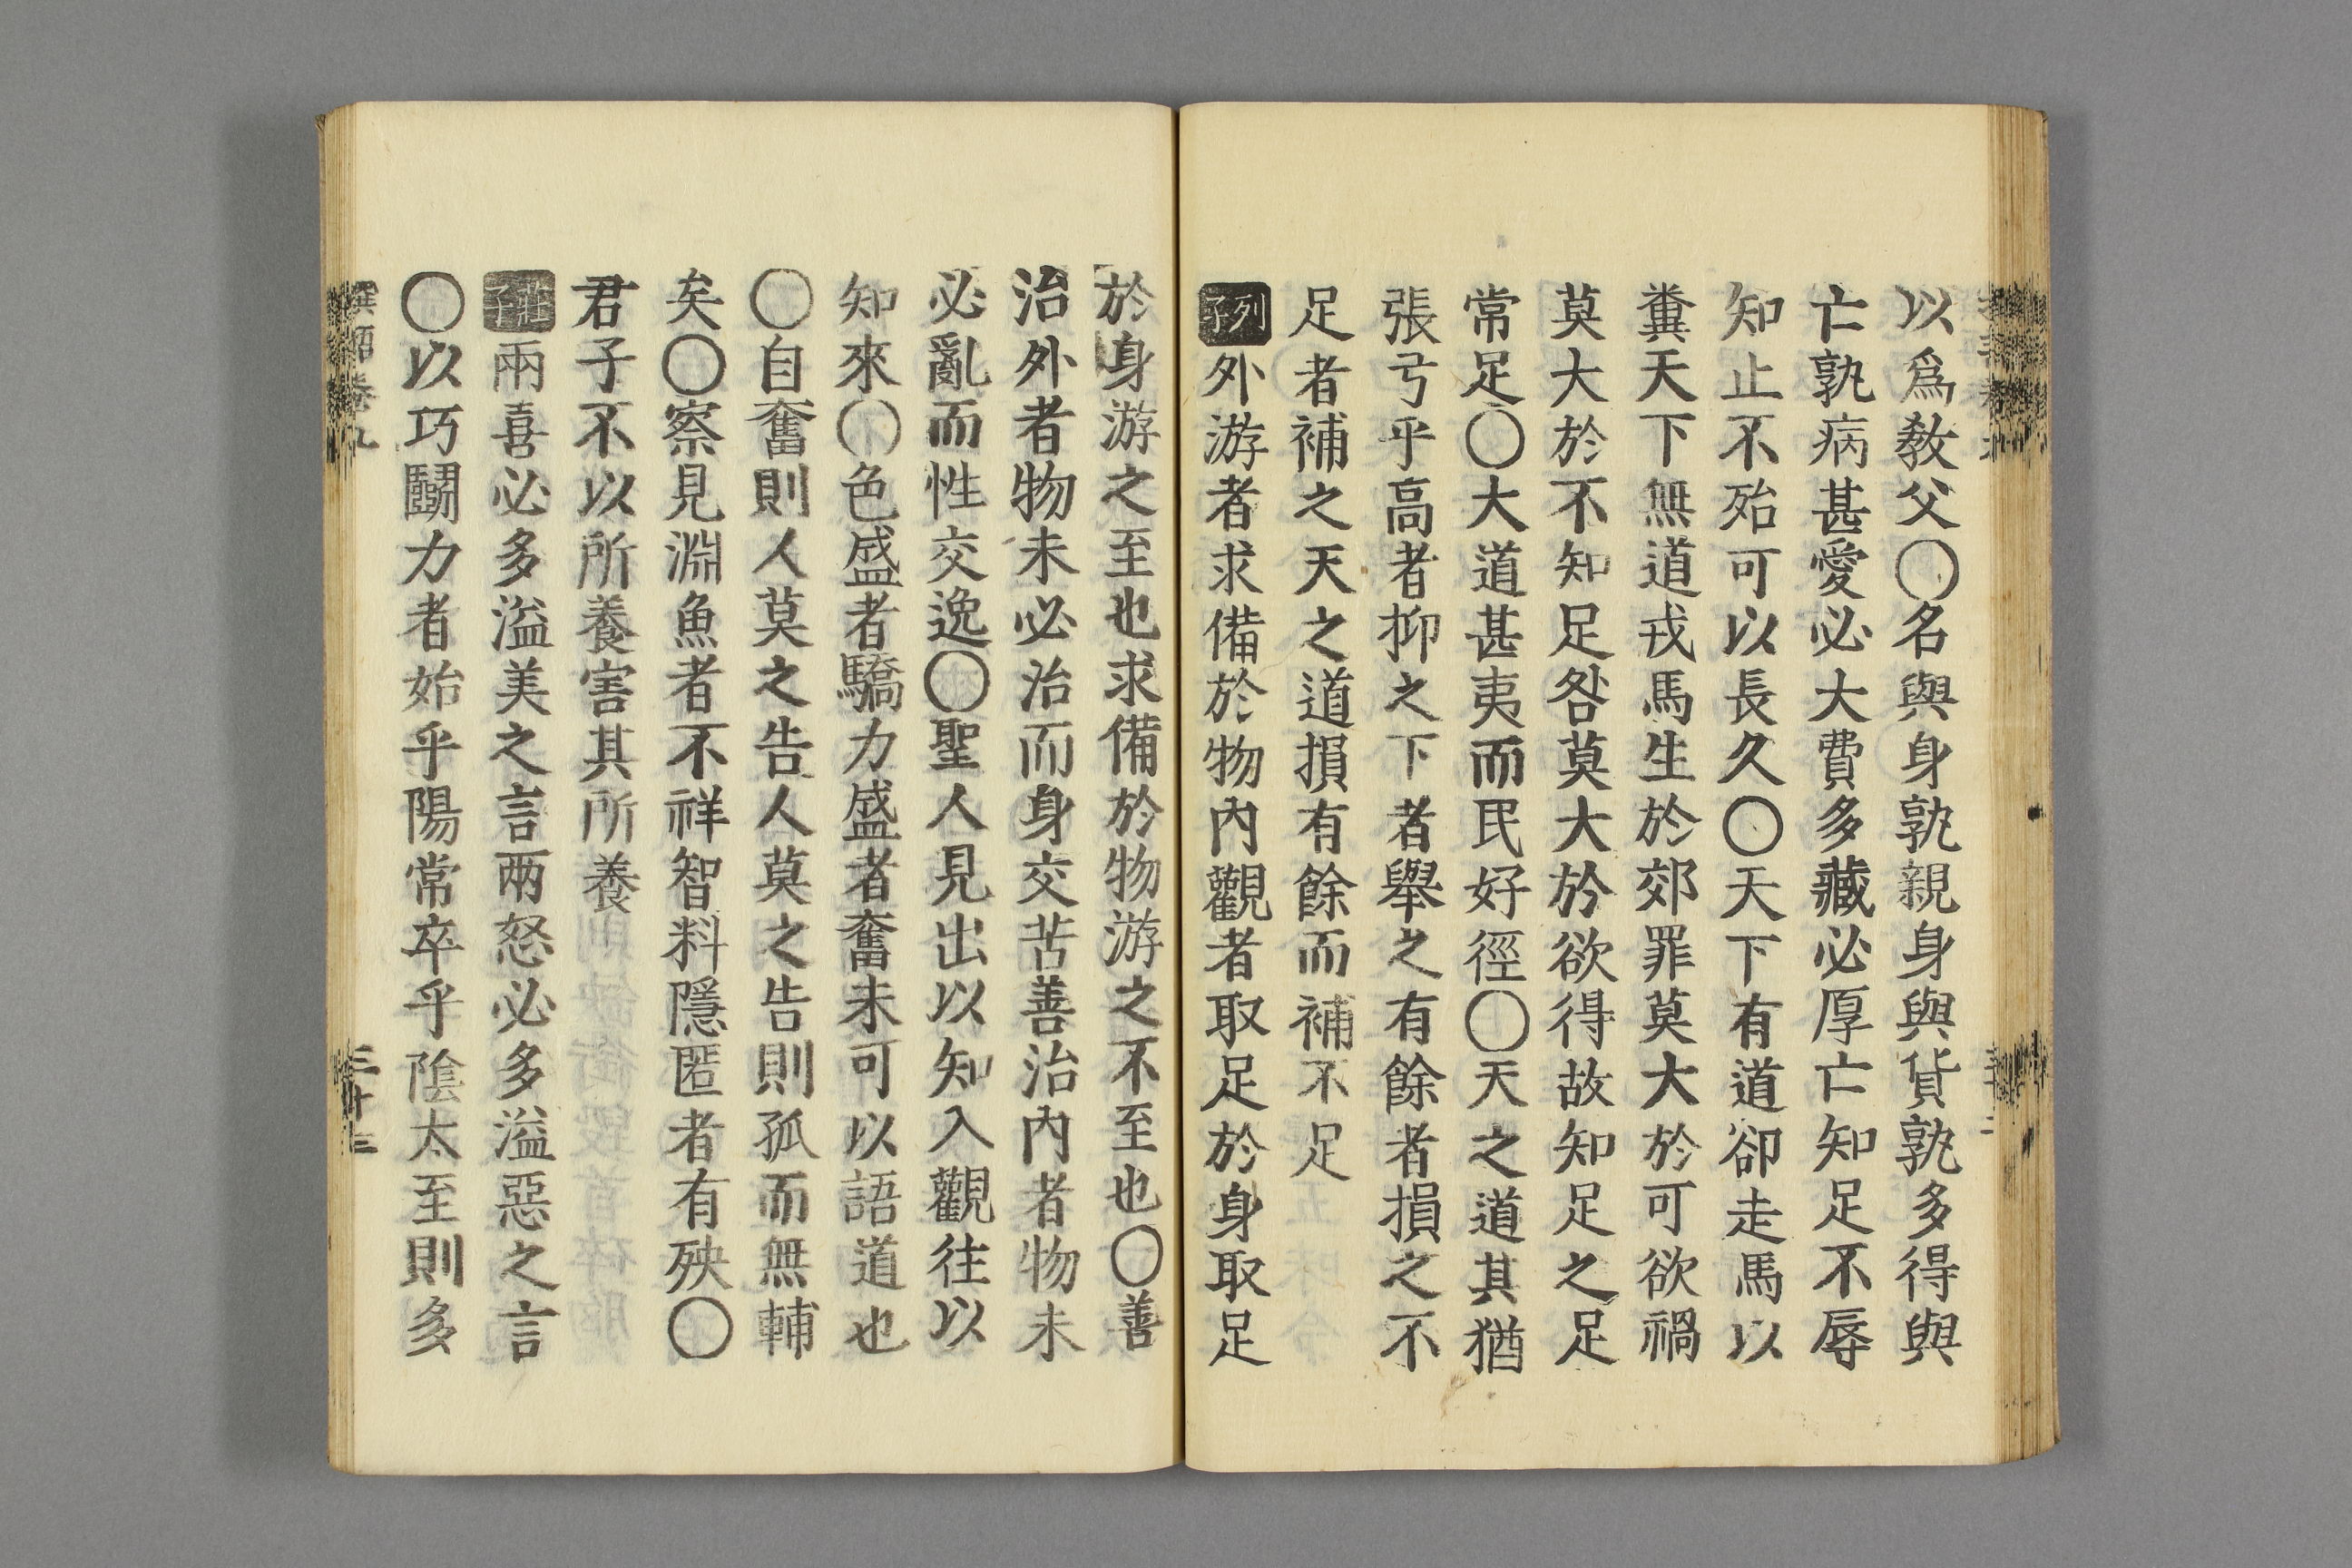 以爲教父〇名與身孰親身與貨孰多得與
亡孰病甚愛必大費多藏必厚亡知足不辱
知止不殆可以長久〇天下有道卻走馬以
糞天下無道戎馬生於郊罪莫大於可欲禍
莫大於不知足咎莫大於欲得故知足之足
常足〇大道甚夷而民好徑〇天之道其猶
張弓乎高者抑之下者舉之有餘者損之不
足者補之天之道損有餘而補不足
列子外游者求備於物內觀者取足於身取足
於身游之至也求備於物游之不至也〇善
治外者物未必治而身交苦善治內者物未
必亂而性交逸〇聖人見出以知入觀往以
知來〇色盛者驕力盛者奮未可以語道也
〇自奮則人莫之告人莫之告則孤而無輔
矣〇察見淵魚者不祥智料隱匿者有殃〇
君子不以所養害其所養
莊子兩喜必多溢美之言兩怒必多溢惡之言
〇以巧鬭力者始乎陽常卒乎陰太至則多
卷九
三十三